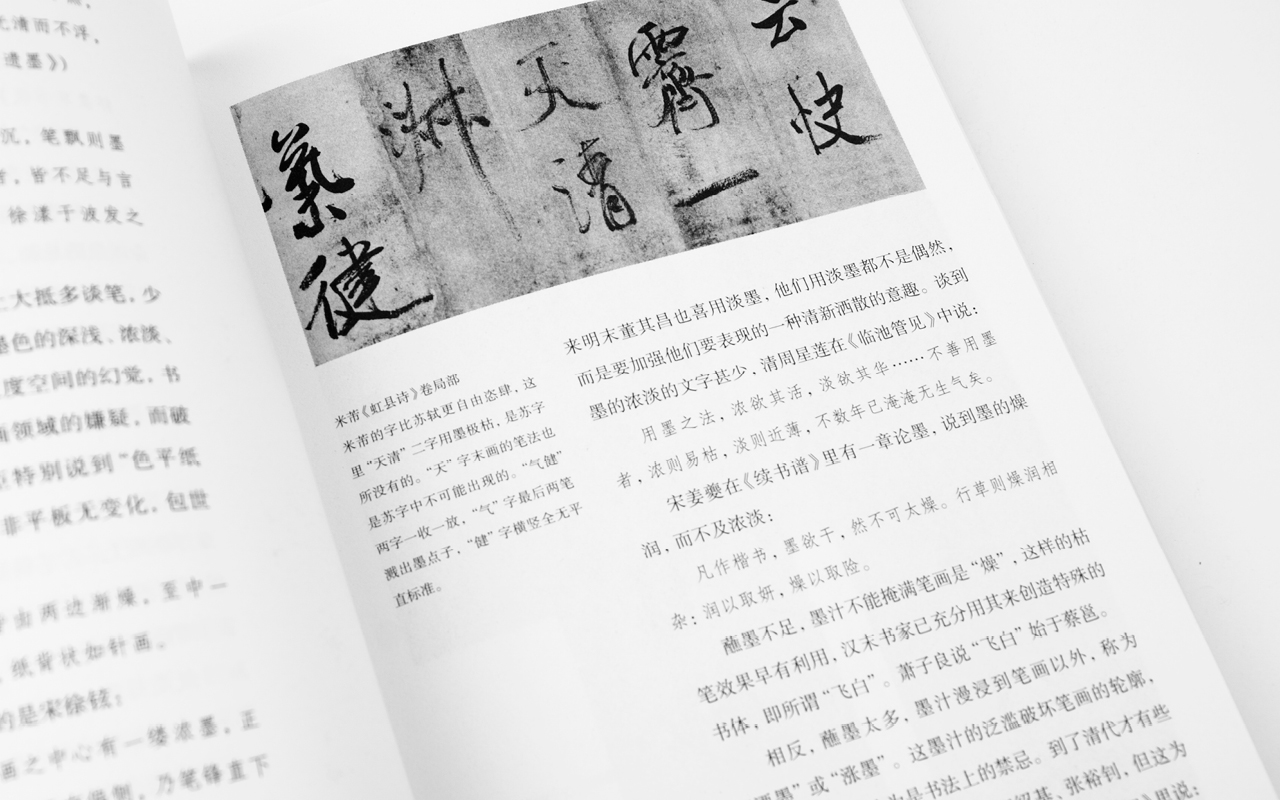 无清而不浮，
遗墨》)
沉，笔飘则墨
，皆不足与言
徐漾于波发之
大抵多谈笔，少
墨色的深浅、浓淡、
度空间的幻觉，书
画领域的嫌疑，而破
特别说到“色平纸
非平板无变化，包世
由两边渐燥，至中一
纸背状如针画。
的是宋徐铉：
画之中心有一缕浓墨，正
偏侧，乃笔锋直下
云快
霁一
天清
淋
气健
米芾《虹县诗》卷局部
米芾的字比苏轼更自由恣肆，这
里“天清”二字用墨极枯，是苏字
所没有的。“天”字末画的笔法也
是苏字中不可能出现的。“气健”
两字一收一放，“气”字最后两笔
溅出墨点子，“健”字横竖全无平
直标准。
来明末董其昌也喜用淡墨，他们用淡墨都不是偶然，
而是要加强他们要表现的一种清新洒散的意趣。谈到
墨的浓淡的文字甚少，清周星莲在《临池管见》中说：
用墨之法，浓欲其活，淡欲其华……不善用墨
者，浓则易枯，淡则近薄，不数年已淹淹无生气矣。
宋姜夔在《续书谱》里有一章论墨，说到墨的燥
润，而不及浓淡：
凡作楷书，墨欲干，然不可太燥。行草则燥润相
杂：润以取妍，燥以取险。
蘸墨不足，墨汁不能掩满笔画是“燥”，这样的枯
笔效果早有利用，汉末书家已充分用其来创造特殊的
书体，即所谓“飞白”。萧子良说“飞白”始于蔡邕。
相反，蘸墨太多，墨汁漫浸到笔画以外，称为
墨”或“涨墨”。这墨汁的泛滥破坏笔画的轮廓，
为是书法上的禁忌。到了清代才有些
绍基、张裕钊，但这为
》里说：